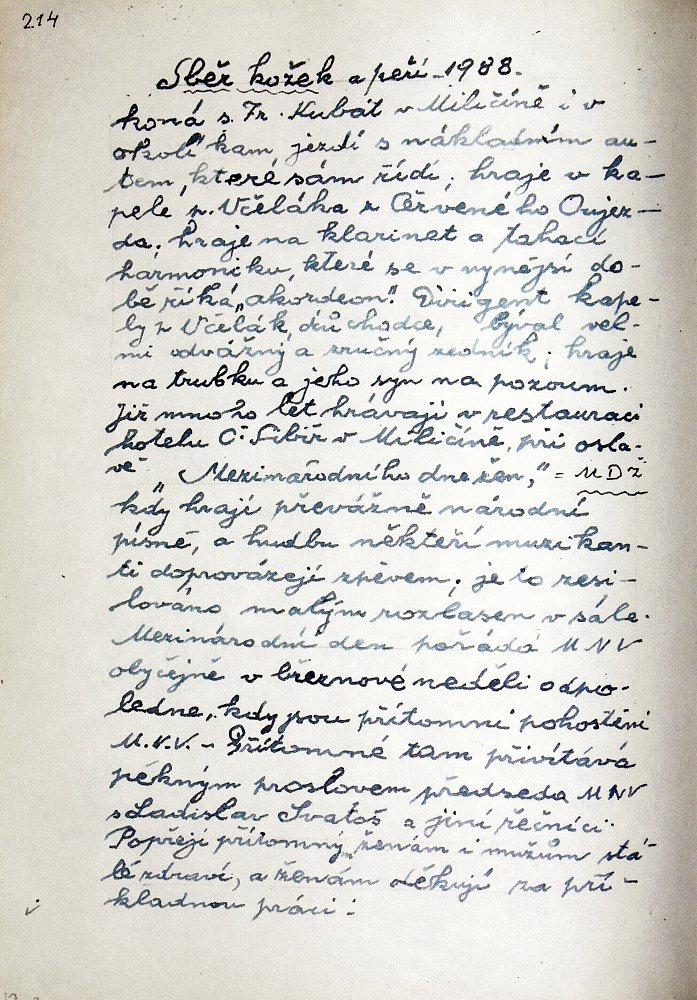 214
Sběr kožek a peří - 1988.
koná s. Fr. Kubát v Miličíně i v
okolí kam jezdí s nákladním au-
tem, které sám řídí; hraje v ka-
pele p. Včeláka z Červeného Oujez-
da; hraje na klarinet a tahací
harmoniku, které se v nynější do-
bě říká „akordeon". Dirigent kape-
ly p. Včelák, důchodce, býval vel-
mi odvážný a zručný zedník; hraje
na trubku a jeho syn na pozoun.
Již mnoho let hrávají v restauraci
hotelu Č. Sibiř v Miličíně, při osla-
vě „Mezinárodního dne žen," = MDŽ
kdy hrají převážně národní
písně, a hudbu někteří muzikan-
ti doprovázejí zpěvem; je to zesi-
lováno malým rozlasen v sále.
Mezinárodní den pořádá MNV
obyčejně v březnové neděli odpo-
ledne, kdy jsou přítomni pohostěni
M.N.V. - Přítomné tam přivítává
pěkným proslovem předseda MNV
s Ladislav Svatoš a jiní řečníci.
Popřejí přítomný ženám i mužům stá-
lé zdraví, a ženám děkují za pří-
kladnou práci.